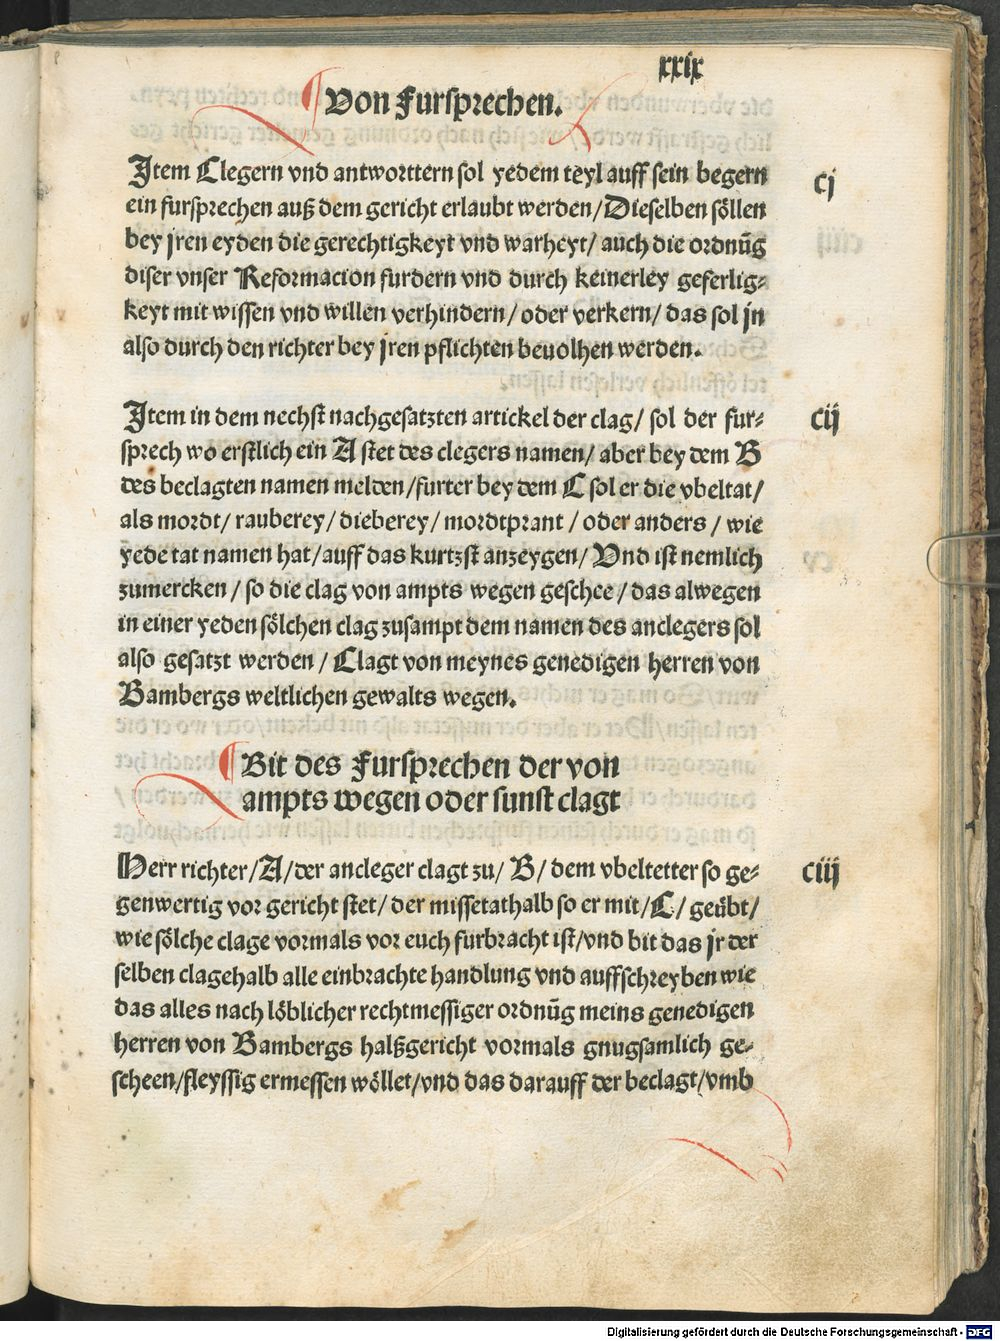 xxix
Von Fursprechen.
Jtem Clegern vnd antworttern sol yedem teyl auff sein begern
cj
ein fursprechen auß dem gericht erlaubt werden/Dieselben söllen
bey jren eyden die gerechtigkeyt vnd warheyt/ auch die ordnūg
diser vnser Reformacion furdern vnd durch keinerley geferlig⸗
keyt mit wissen vnd willen verhindern/ oder verkern/ das sol jn
also durch den richter bey jren pflichten beuolhen werden.
Jtem in dem nechst nachgesatzten artickel der clag/ sol der fur⸗
cij
sprech wo erstlich ein A stet des clegers namen/ aber bey dem B
des beclagten namen melden/furter bey dem C sol er die vbeltat/
als mordt/ rauberey/ dieberey/ mordtprant / oder anders / wie
yede tat namen hat/auff das kurtzst anzeygen/ Vnd ist nemlich
zumercken / so die clag von ampts wegen geschee / das alwegen
in einer yeden sölchen clag zusampt dem namen des anclegers sol
also gesatzt werden / Clagt von meynes genedigen herren von
Bambergs weltlichen gewalts wegen.
Bit des Fursprechen der von
ampts wegen oder sunst clagt
Herr richter/A/der ancleger clagt zu/ B/ dem vbeltetter so ge⸗
ciij
genwertig vor gericht stet/ der missetathalb so er mit/C/ geübt/
wie sölche clage vormals vor euch furbracht ist/vnd bit das jr der
selben clagehalb alle einbrachte handlung vnd auffschreyben wie
das alles nach löblicher rechtmessiger ordnūg meins genedigen
herren von Bambergs halßgericht vormals gnugsamlich ge⸗
scheen/fleyssig ermessen wöllet/vnd das darauff der beclagt/vmb
Digitalisierung gefördert durch die Deutsche Forschungsgemeinschaft - DFG